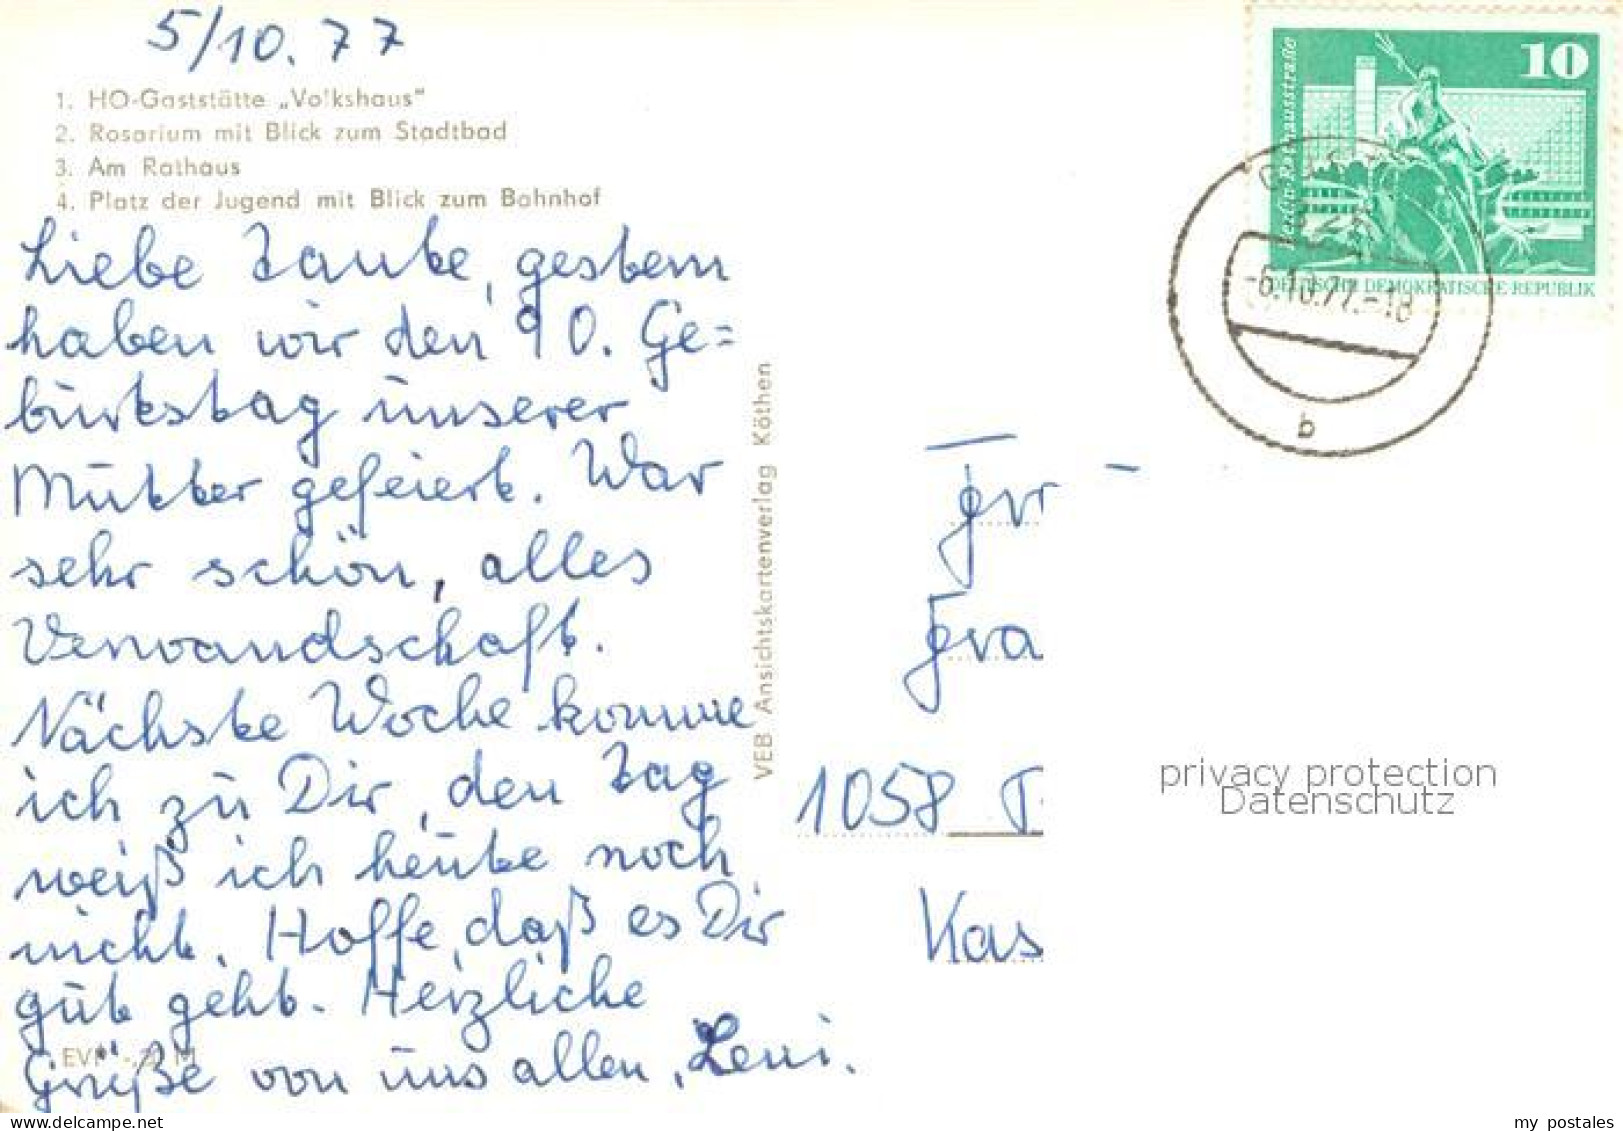 5/10.77
1. HO-Gaststätte „Volkshaus"
2. Rosarium mit Blick zum Stadtbad
3. Am Rathaus
4. Platz der Jugend mit Blick zum Bahnhof
Liebe Tante, gestern
haben wir den 90. Ge=
burtstag unserer
Mutter gefeiert. War
sehr schön, alles
Verwandschaft.
Nächste Woche komme
ich zu Dir, den Tag
weiß ich heute noch
nicht. Hoffe, daß es Dir
gut geht. Herzliche
Grüße von uns allen, Leni.
EVP M
VEB Ansichtskartenverlag Köthen
10
Berlin, Rathausstraße
DEUTSCHE DEMOKRATISCHE REPUBLIK
-6.10.77.-18
b
1058
Kas
privacy protection
Datenschutz
www.delcampe.net
my_postales